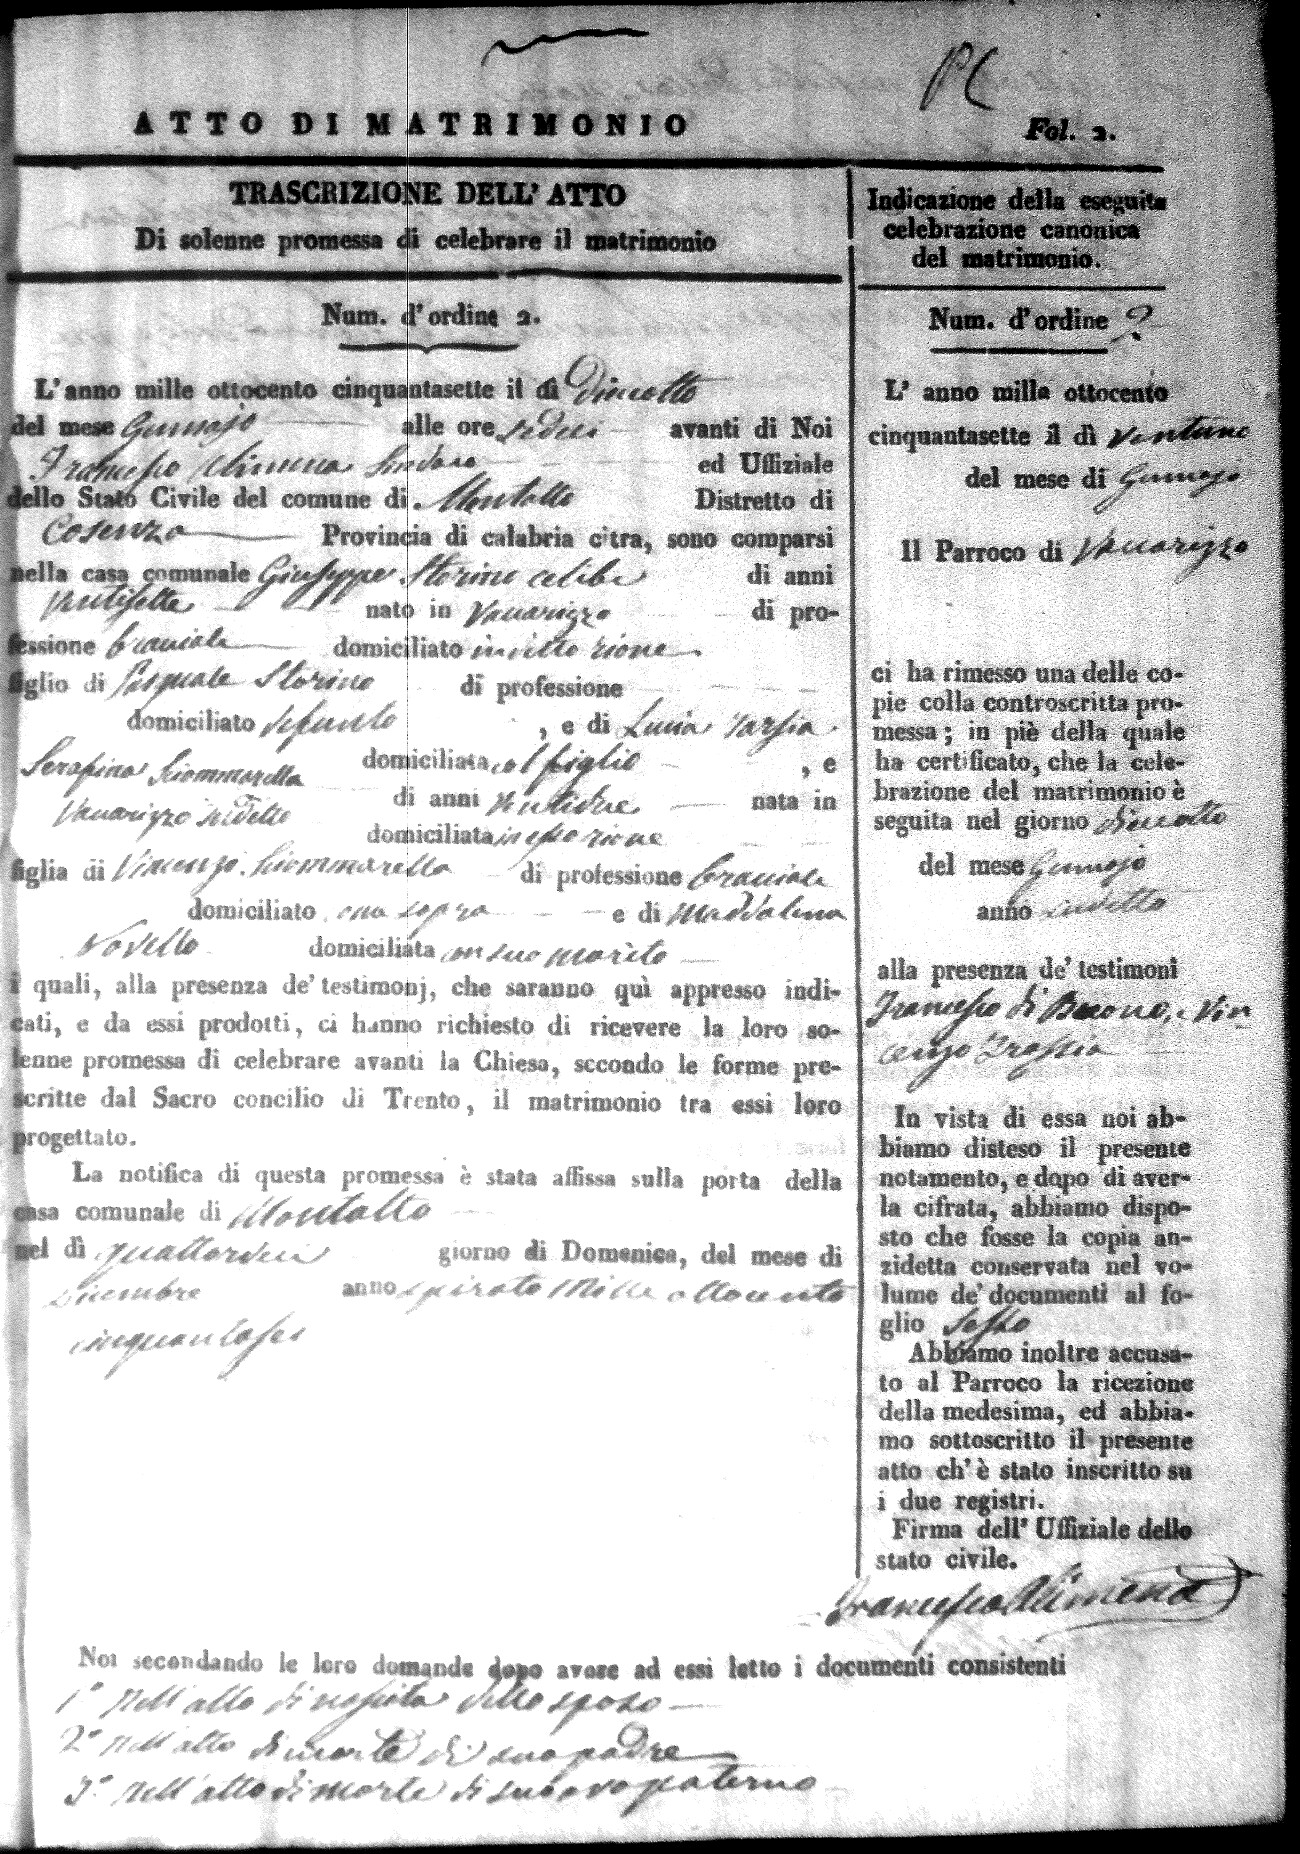 PC
ATTO DI MATRIMONIO
Fol. 2.
TRASCRIZIONE DELL' ATTO
Di solenne promessa di celebrare il matrimonio
Num. d'ordine 2.
L'anno mille ottocento cinquantasette il dì Dieciotto
del mese Gennajo alle ore sedici avanti di Noi
Francesco Alimena Sindaco ed Uffiziale
dello Stato Civile del comune di Montalto Distretto di
Cosenza Provincia di calabria citra, sono comparsi
nella casa comunale Giuseppe Storino celibe di anni
ventisette nato in Vaccarizzo di pro-
fessione bracciale domiciliato in detto rione
figlio di Pasquale Storino di professione
domiciliato defunto , e di Lucia Tarsia
domiciliata col figlio , e
Serafina Sciommarella
di anni ventidue nata in
Vaccarizzo sudetto
domiciliata in esso rione
figlia di Vincenzo Sciommarella di professione bracciale
domiciliato come sopra e di Maddalena
Novello domiciliata con suo marito
i quali, alla presenza de' testimonj, che saranno quì appresso indi-
cati, e da essi prodotti, ci hanno richiesto di ricevere la loro so-
lenne promessa di celebrare avanti la Chiesa, secondo le forme pre-
scritte dal Sacro concilio di Trento, il matrimonio tra essi loro
progettato.
La notifica di questa promessa è stata affissa sulla porta della
casa comunale di Montalto
nel dì quattordici giorno di Domenica, del mese di
Dicembre anno spirato Mille ottocento
cinquantasei
Indicazione della eseguita
celebrazione canonica
del matrimonio.
Num. d'ordine 2
L' anno mille ottocento
cinquantasette il dì ventuno
del mese di Gennajo
Il Parroco di Vaccarizzo
ci ha rimesso una delle co-
pie colla controscritta pro-
messa; in piè della quale
ha certificato, che la cele-
brazione del matrimonio è
seguita nel giorno dieciotto
del mese Gennajo
anno sudetto
alla presenza de' testimoni
Francesco di Buono, e Vin
cenzo
In vista di essa noi ab-
biamo disteso il presente
notamento, e dopo di aver-
la cifrata, abbiamo dispo-
sto che fosse la copia an-
zidetta conservata nel vo-
lume de' documenti al fo-
glio sesto
Abbiamo inoltre accusa-
to al Parroco la ricezione
della medesima, ed abbia-
mo sottoscritto il presente
atto ch' è stato inscritto su
i due registri.
Firma dell' Uffiziale dello
stato civile.
Francesco Alimena
Noi secondando le loro domande dopo avere ad essi letto i documenti consistenti
1º nell'atto di nascita dello sposo
2º nell'atto di morte di suo padre
3º nell'atto di morte di suo avo paterno